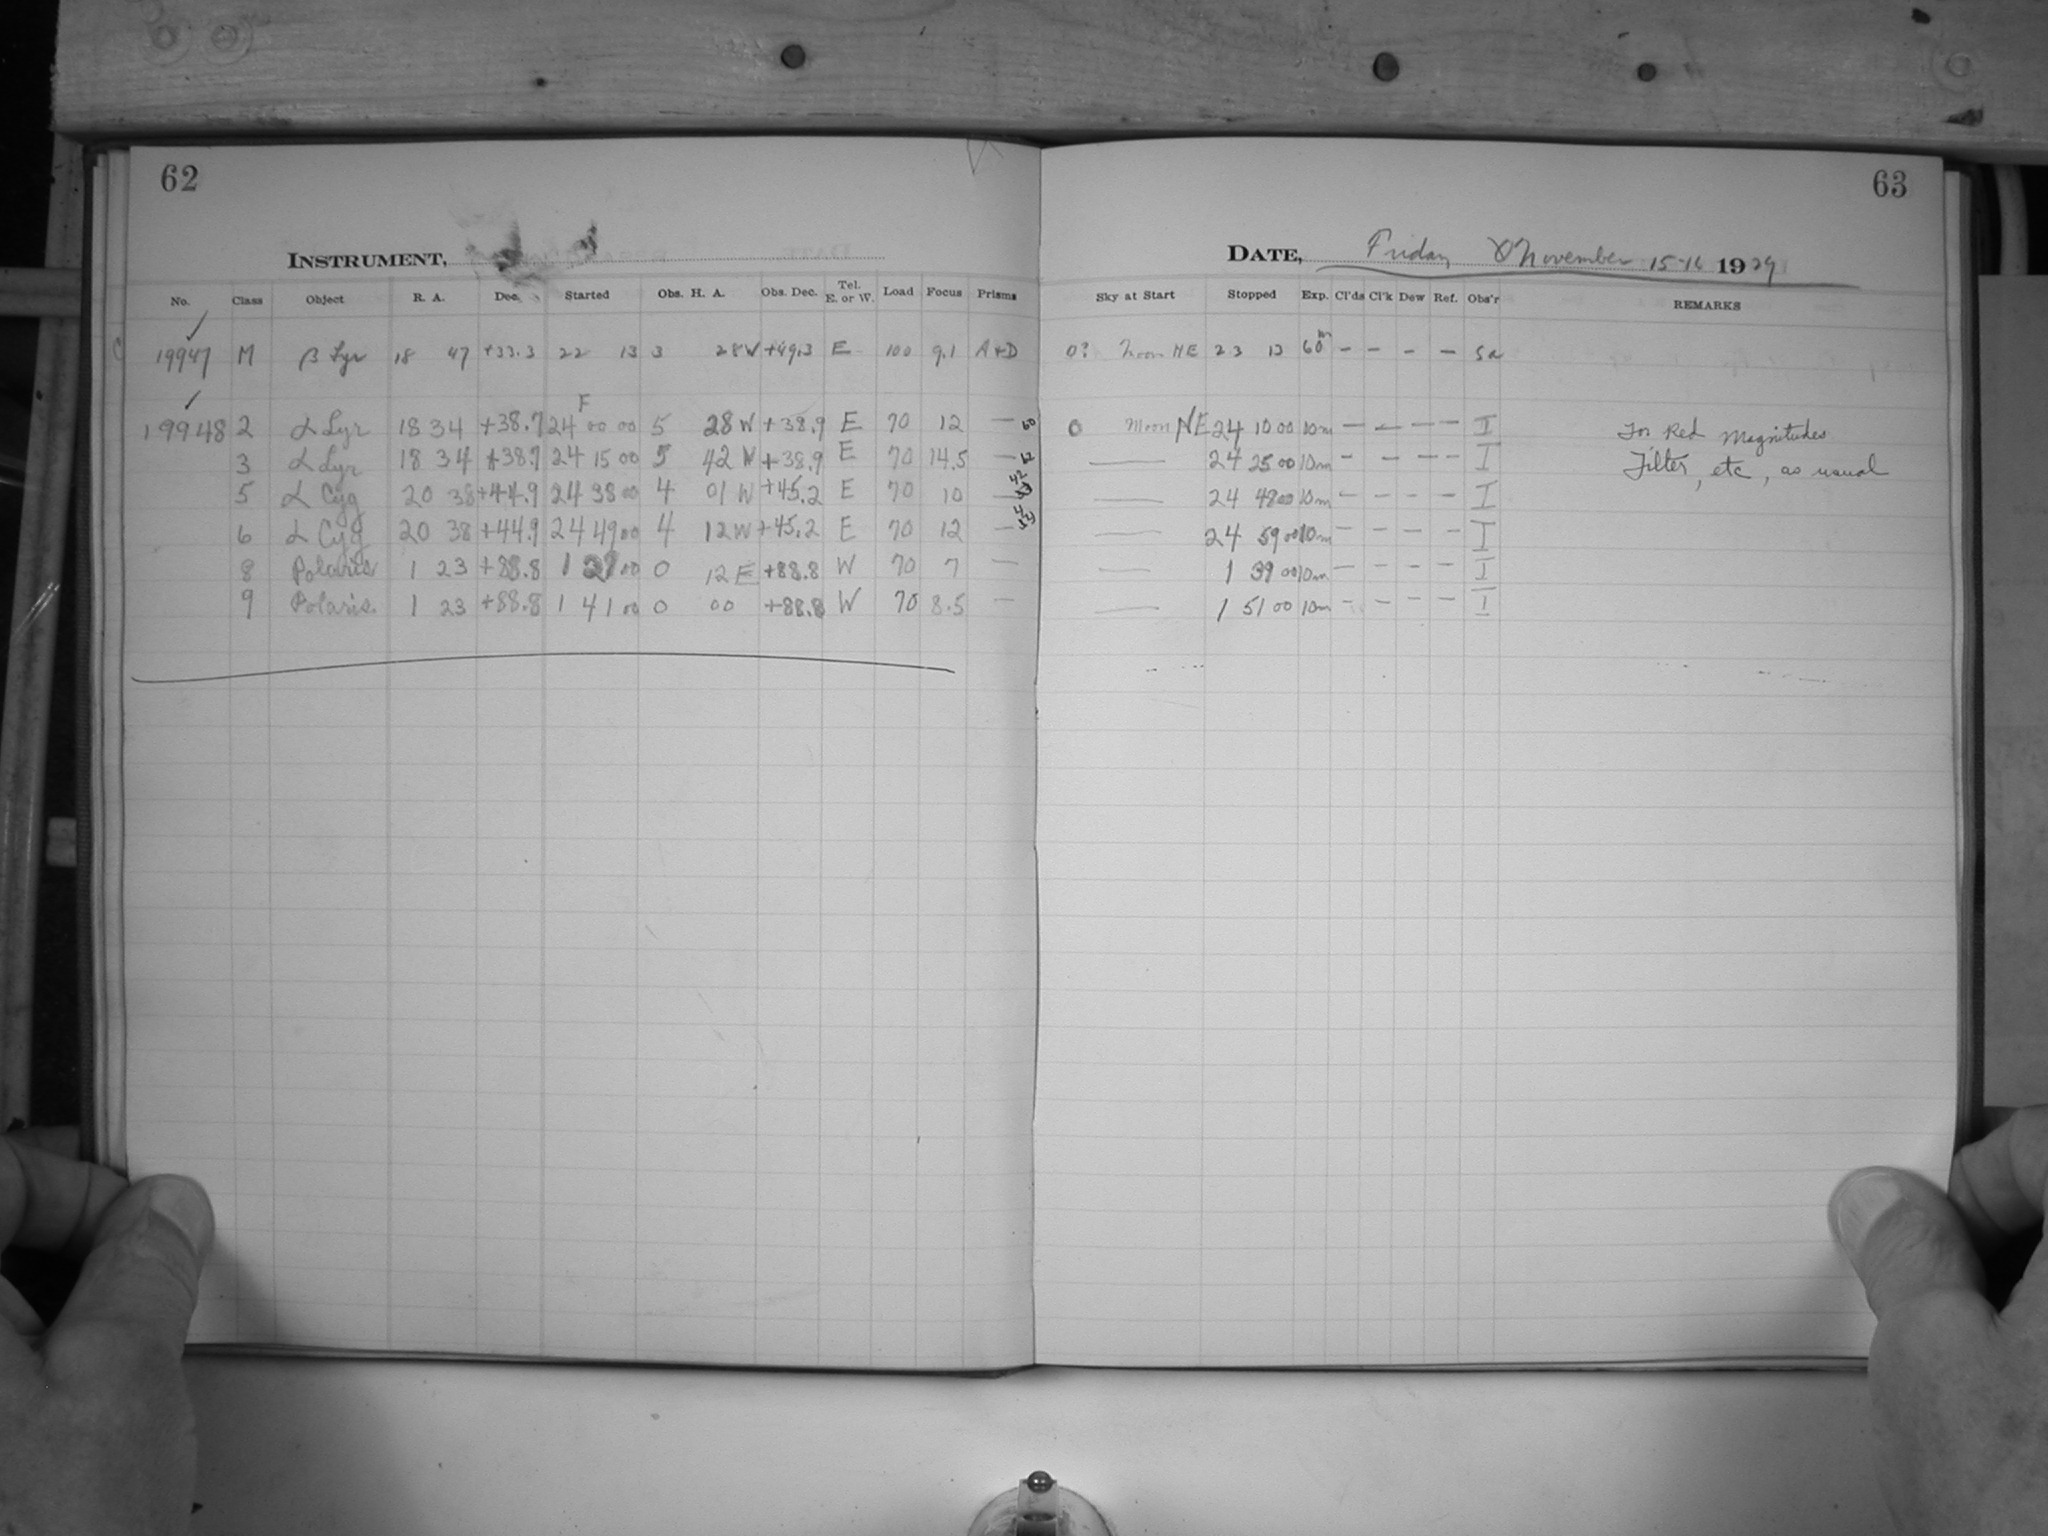 62
INSTRUMENT,
No. Class Object R. A. Dec. Started Obs. H. A. Obs. Dec. Tel. E. or W. Load Focus Prisms
19947 M β Lyr 18 47 +33.3 22 13 3 28 W +49.3 E 100 9.1 A+D
F
19948 2 α Lyr 18 34 +38.7 24 00 00 5 28 W +38.9 E 70 12 —
3 α Lyr 18 34 +38.7 24 15 00 5 42 W +38.9 E 70 14.5 —
5 α Cyg 20 38 +44.9 24 38 00 4 01 W +45.2 E 70 10 —
6 α Cyg 20 38 +44.9 24 49 00 4 12 W +45.2 E 70 12 —
8 Polaris 1 23 +88.8 1 29 00 0 12 E +88.8 W 70 7 —
9 Polaris 1 23 +88.8 1 41 00 0 00 +88.8 W 70 8.5 —
63
DATE, Friday November 15-16 1929
Sky at Start Stopped Exp. Cl'ds Cl'k Dew Ref. Obs'r REMARKS
0? Moon NE 23 13 60m — — — — Sa
0 Moon NE 24 10 00 10m — — — — I For Red Magnitudes
— 24 25 00 10m — — — — I Filter, etc, as usual
— 24 48 00 10m — — — — I
— 24 59 00 10m — — — — I
— 1 39 00 10m — — — — I
— 1 51 00 10m — — — — I